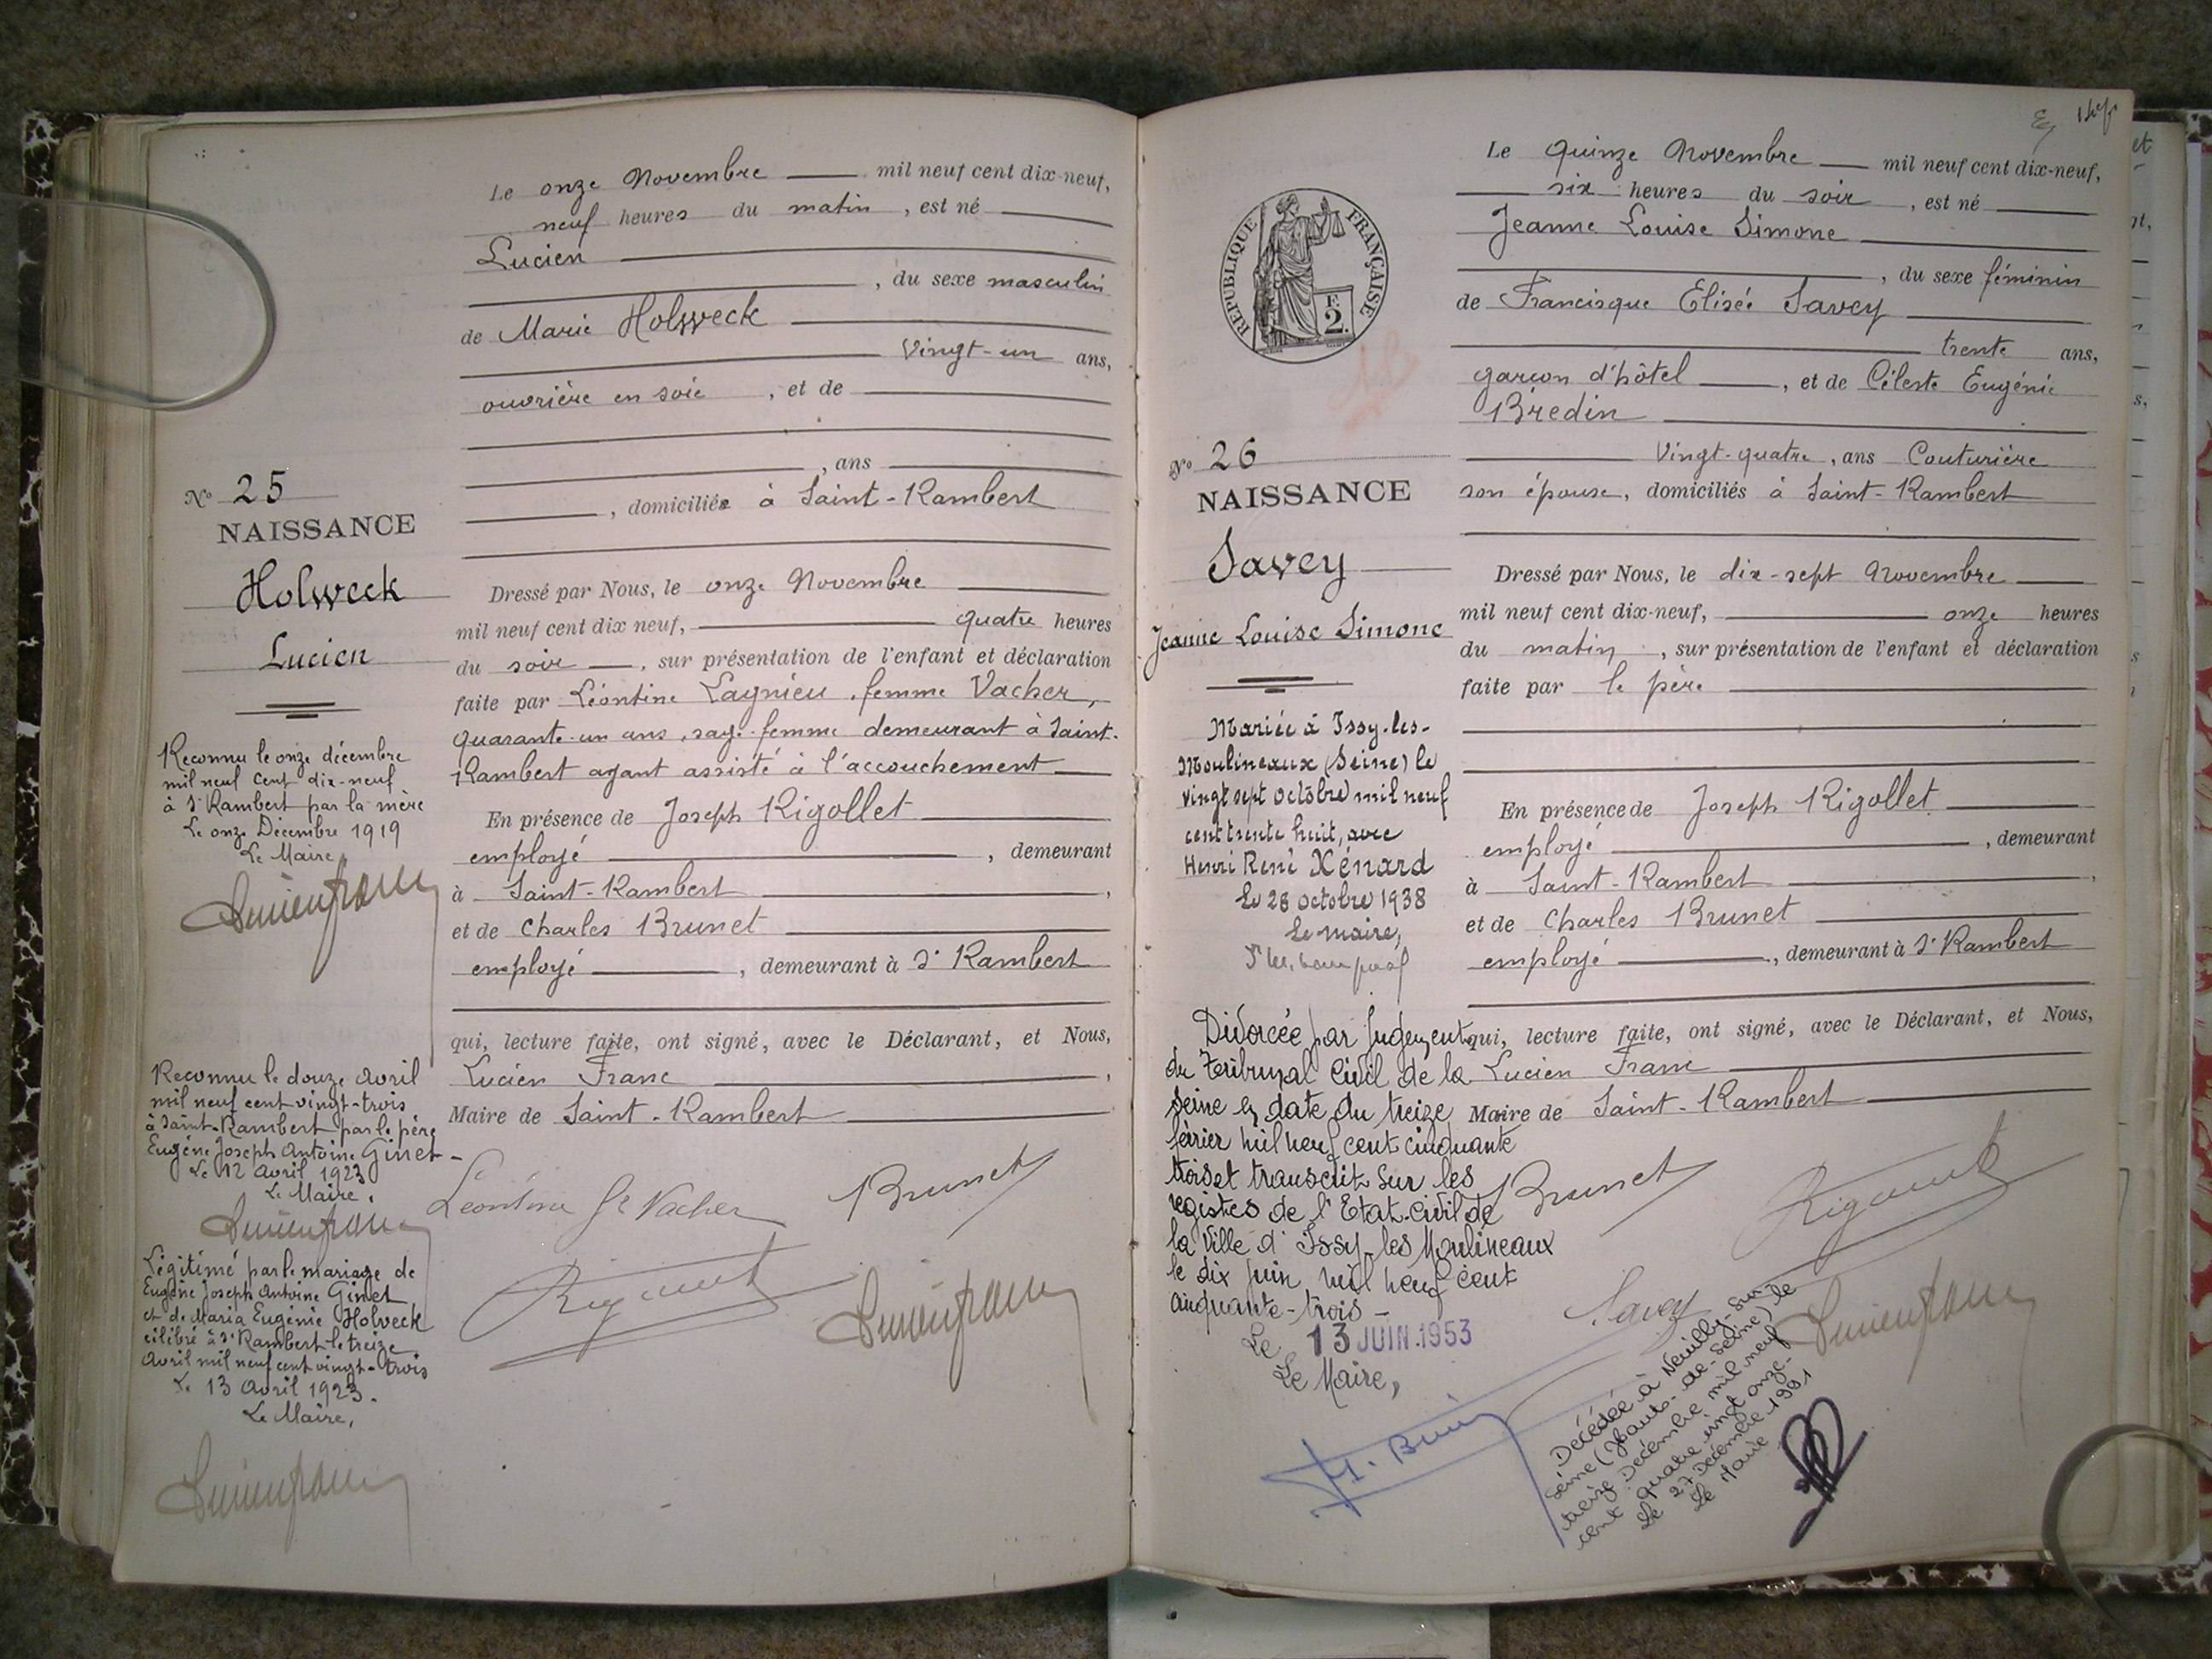 Le onze Novembre mil neuf cent dix-neuf,
neuf heures du matin, est né
Lucien
, du sexe masculin
de Marie Holweck
Vingt-un ans,
ouvrière en soie, et de
, ans
, domiciliée à Saint-Rambert
N° 25
NAISSANCE
Holweck
Lucien
Dressé par Nous, le onze Novembre
mil neuf cent dix neuf, quatre heures
du soir, sur présentation de l'enfant et déclaration
faite par Léontine Lagnieu, femme Vacher,
quarante-un ans, sage-femme demeurant à Saint-
Rambert ayant assisté à l'accouchement
En présence de Joseph Rigollet
employé, demeurant
à Saint-Rambert,
et de Charles Brunet
employé, demeurant à St Rambert
qui, lecture faite, ont signé, avec le Déclarant, et Nous,
Lucien Franc,
Maire de Saint-Rambert
Léontine Vacher Brunet
Reconnu le onze décembre
mil neuf cent dix-neuf
à St Rambert par la mère
Le onze Décembre 1919
Le Maire,
Reconnu le douze avril
mil neuf cent vingt-trois
à Saint-Rambert par le père
Eugène Joseph Antoine Ginet-
Le 12 avril 1923
Le Maire,
Légitimé par le mariage de
Eugène Joseph Antoine Ginet
et de Maria Eugénie Holveck
célébré à St Rambert le treize
avril mil neuf cent vingt-trois
Le 13 avril 1923.
Le Maire,
Le quinze Novembre mil neuf cent dix-neuf,
six heures du soir, est né
Jeanne Louise Simone
, du sexe féminin
de Francisque Elisée Savey
trente ans,
garçon d'hôtel, et de Céleste Eugénie
Bredin
Vingt-quatre, ans Couturière
son épouse, domiciliés à Saint-Rambert
REPUBLIQUE FRANÇAISE
F.
2.
N° 26
NAISSANCE
Savey
Jeanne Louise Simone
Dressé par Nous, le dix-sept Novembre
mil neuf cent dix-neuf, onze heures
du matin, sur présentation de l'enfant et déclaration
faite par le père
En présence de Joseph Rigollet
employé, demeurant
à Saint-Rambert,
et de Charles Brunet
employé, demeurant à St Rambert
qui, lecture faite, ont signé, avec le Déclarant, et Nous,
Lucien Franc
Maire de Saint-Rambert
Brunet
Savey
Mariée à Issy-les-
Moulineaux (Seine) le
vingt sept octobre mil neuf
cent trente huit, avec
Henri René Xénard
Le 28 octobre 1938
Le maire,
Divorcée par Jugement
du Tribunal Civil de la
Seine en date du treize
février mil neuf cent cinquante
trois et transcrit sur les
registres de l'Etat-Civil de
la Ville d'Issy-les Moulineaux
le dix juin mil neuf cent
cinquante-trois -
Le 13 JUIN 1953
Le Maire,
Décédée à Neuilly-sur-
Seine (Hauts-de-Seine) le
treize Décembre mil neuf
cent quatre vingt onze-
Le 27 Décembre 1991
Le Maire